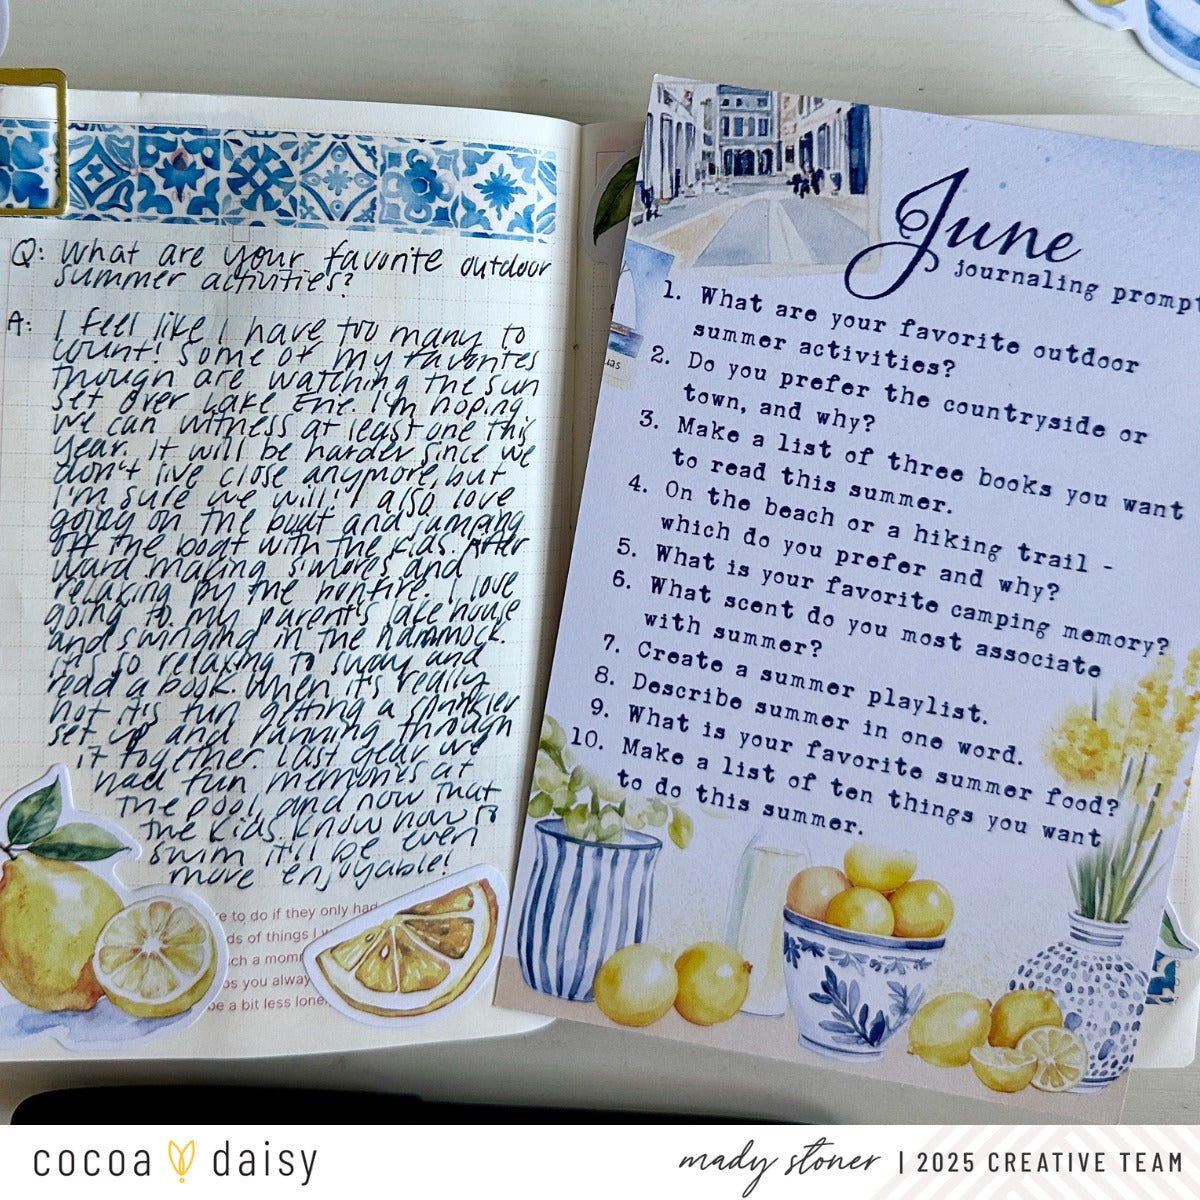 Q: What are your favorite outdoor
summer activities?
A: I feel like I have too many to
count! Some of my favorites
though are watching the sun
set over Lake Erie. I'm hoping
we can witness at least one this
year. It will be harder since we
don't live close anymore, but
I'm sure we will! I also love
going on the boat and jumping
off the boat with the kids. After
ward making s'mores and
relaxing by the bonfire. I love
going to my parent's lake house
and swinging in the hammock.
It's so relaxing to sway and
read a book. When it's really
hot it's fun getting a sprinkler
set up and running through
it together. Last year we
had fun memories at
the pool, and now that
the kids know how to
swim it'll be even
more enjoyable!
e to do if they only had
ds of things I w
ch a mom
os you alway
be a bit less lone
June
journaling prompt
1. What are your favorite outdoor
summer activities?
2. Do you prefer the countryside or
town, and why?
3. Make a list of three books you want
to read this summer.
4. On the beach or a hiking trail -
which do you prefer and why?
5. What is your favorite camping memory?
6. What scent do you most associate
with summer?
7. Create a summer playlist.
8. Describe summer in one word.
9. What is your favorite summer food?
10. Make a list of ten things you want
to do this summer.
cocoa daisy
mady stoner | 2025 CREATIVE TEAM